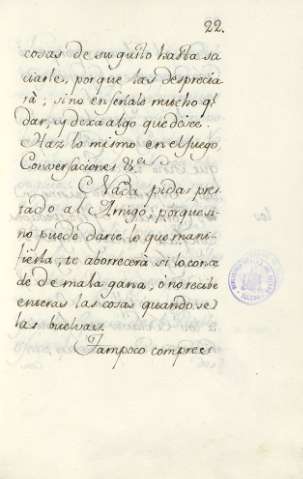 22.
cosas de su gusto hasta sa
ciarle, porque las desprecia
rà; sino enseñale mucho q.e
dar, y dexa algo que desee.
Haz lo mismo en el Juego,
Conversaciones &.a
Nada pidas pres
tado al Amigo, porque si
no puede darte lo que mani
fiesta, te aborrecerà si lo conce
de de mala gana, ò no recibe
enteras las cosas quando se
las buelvas.
Tampoco compres